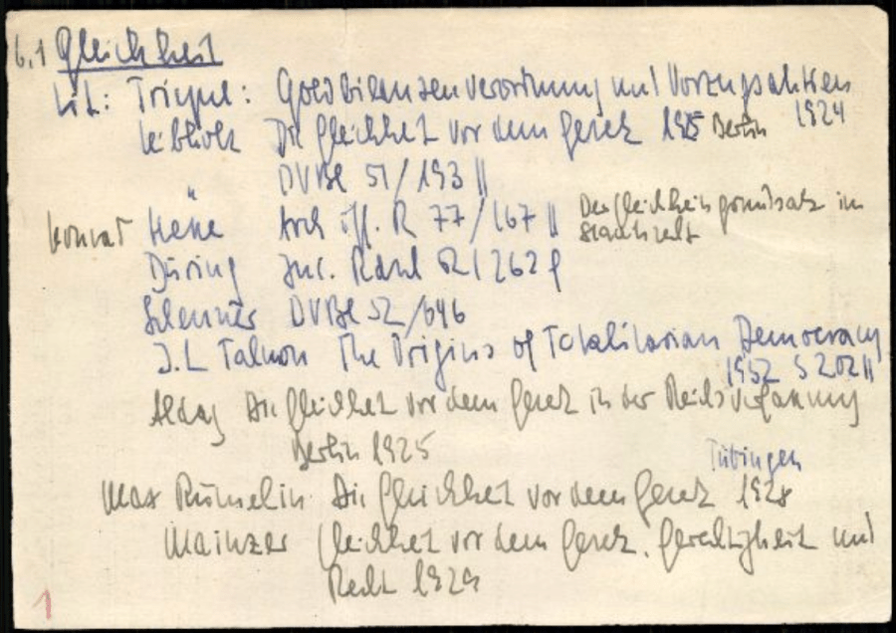 6.1 Gleichheit
Lit.: Triepel: Goldbilanzenverordnung und Vorzugsaktien
1924
Leibholz Die Gleichheit vor dem Gesetz 1925 Berlin
DVBl 51/193 ||
Konrad Hesse Arch öff. R 77/167 || Der Gleichheitsgrundsatz im
Staatsrecht
Düring Jur. Rdsch 521262 f
Scheuner DVBl 52/646
J.L Talmon The Origins of Totalitarian Democracy
1952 S 202 ||
Aldag Die Gleichheit vor dem Gesetz in der Reichsverfassung
Berlin 1925
Tübingen
Max Rümelin Die Gleichheit vor dem Gesetz 1928
Mainzer Gleichheit vor dem Gesetz, Gerechtigkeit und
Recht 1929
1